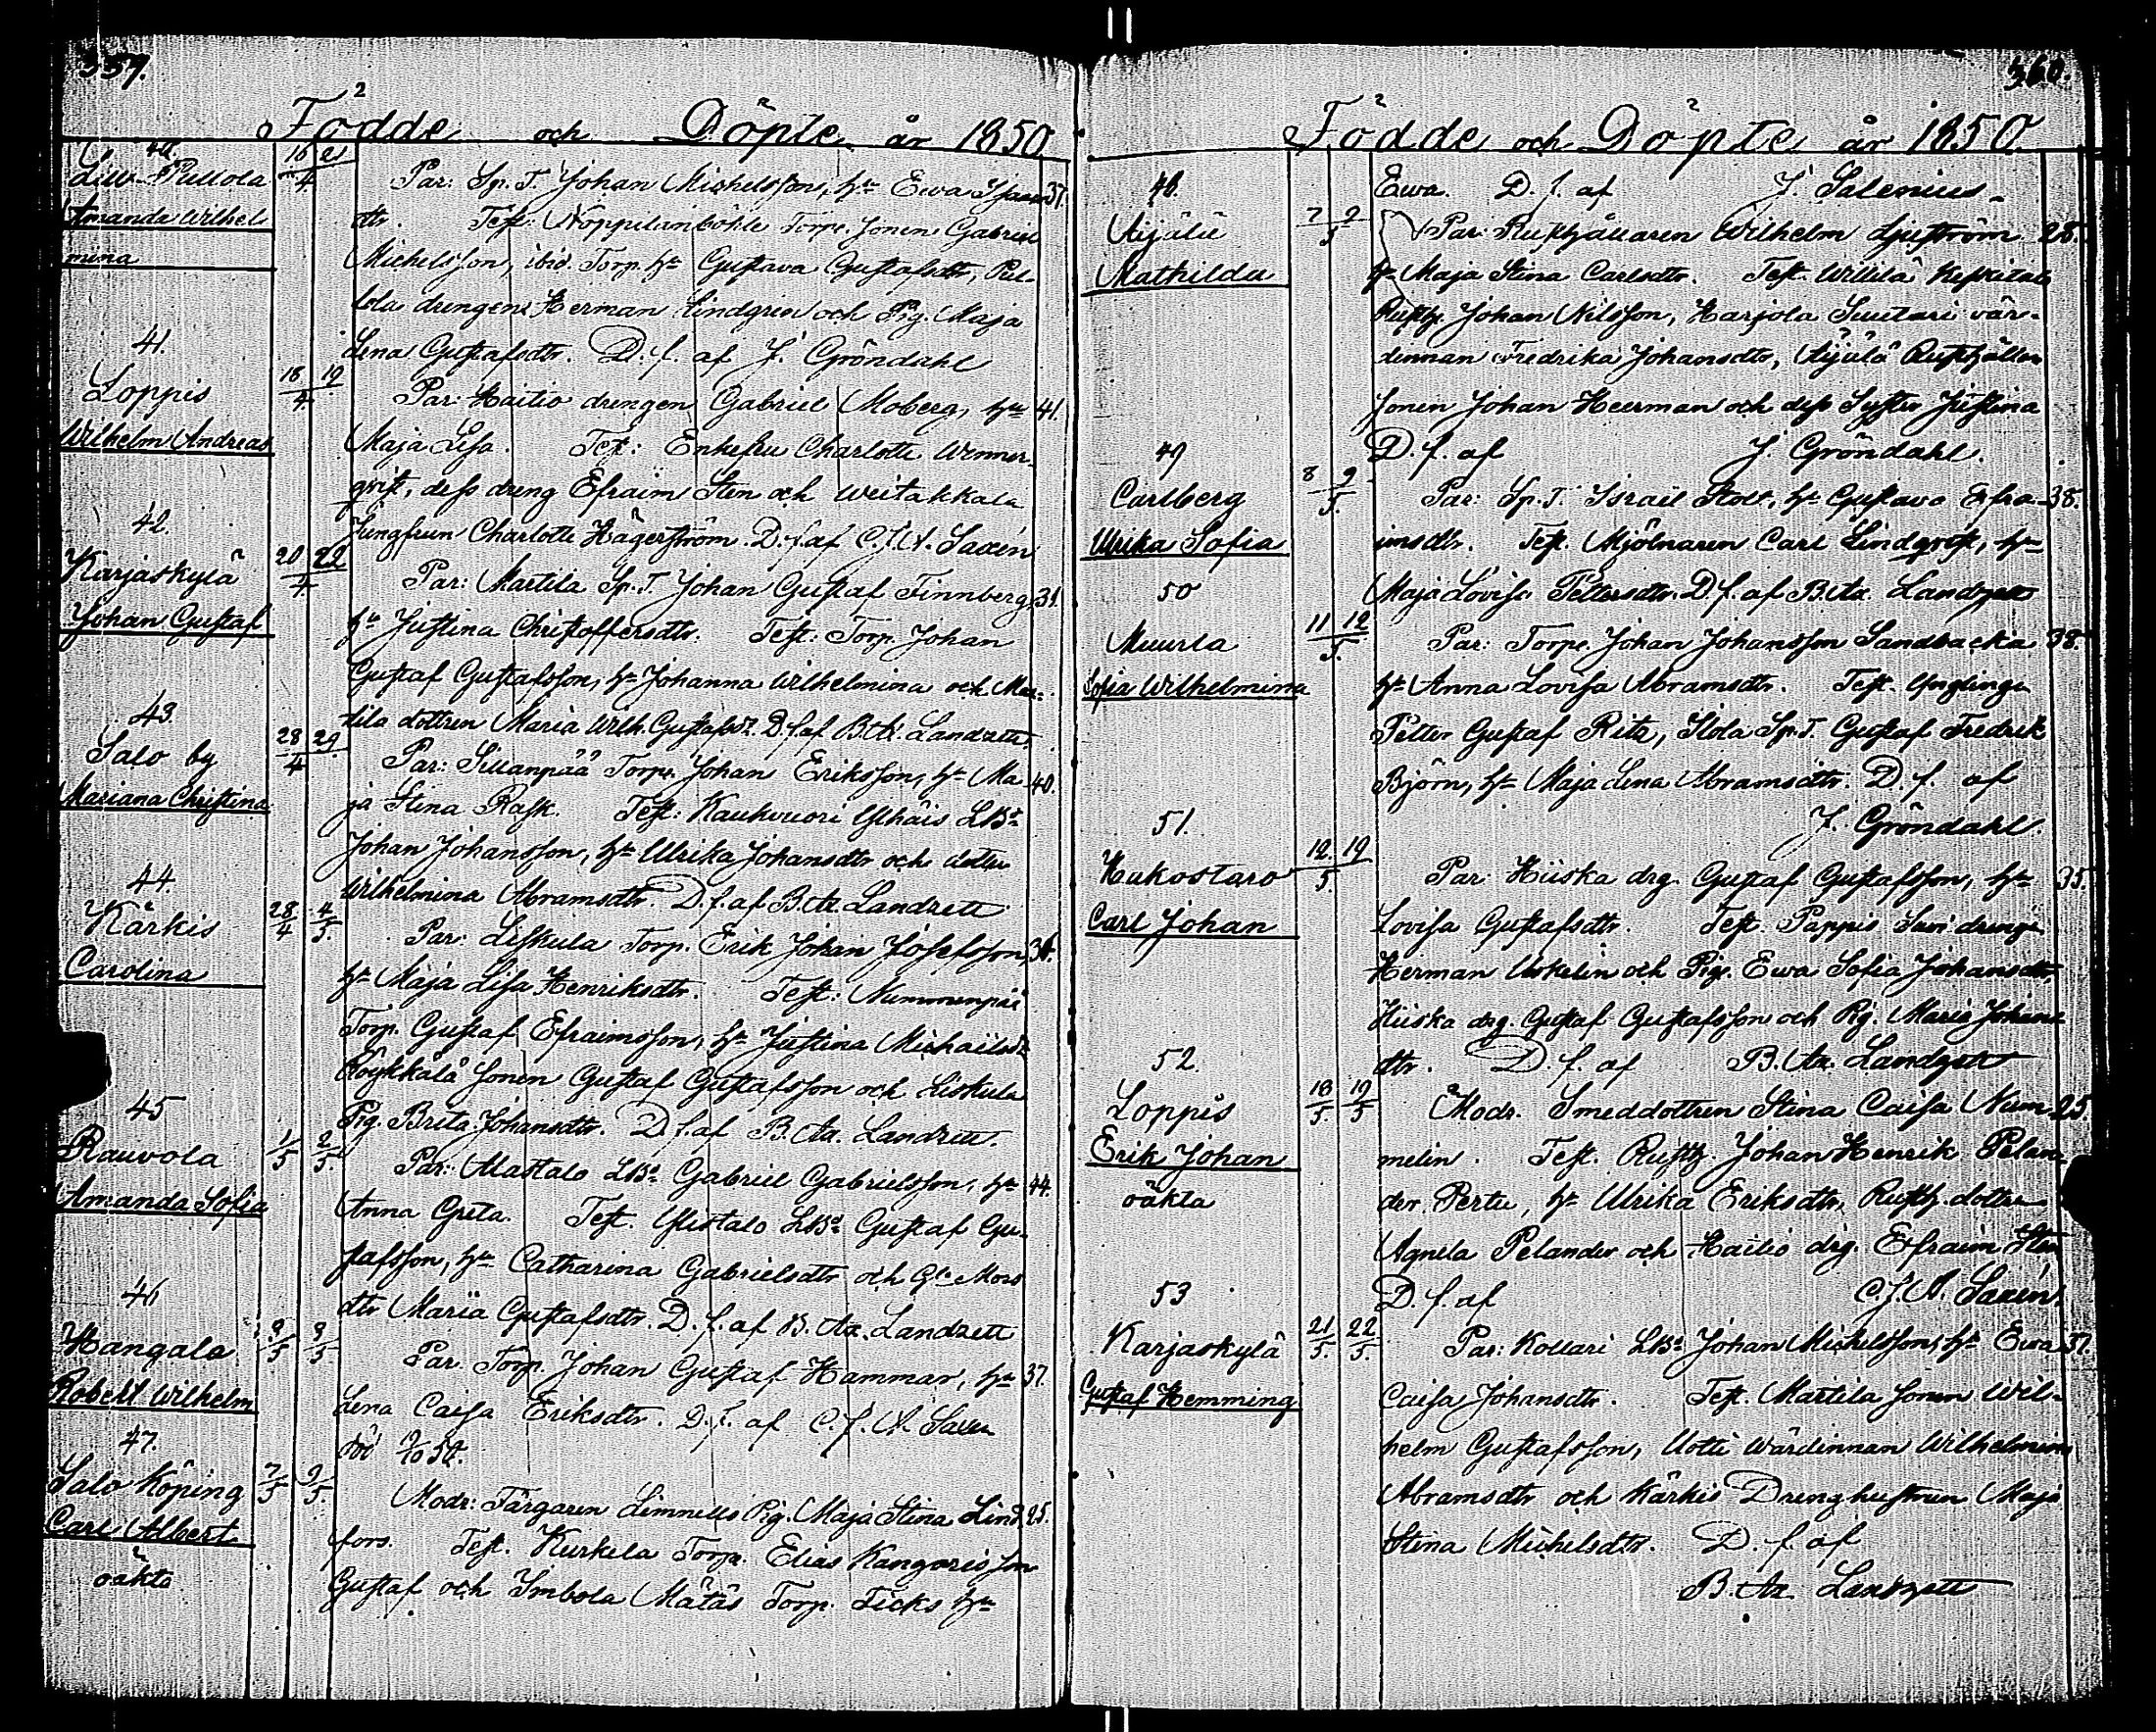 359.
Födde och Döpte år 1850
40.
Lill-Pullola 16 21/4
Amanda Wilhel
mina
Par: Sp. T. Johan Michelsson, h:u Ewa Isaac 37.
dtr. Test: Torp. sonen Gabriel
Michelsson, ibid. Torp. h:u Gustava Gustafsdtr, Pul-
lola drengen Herman Lindgren och Pig. Maja
Lena Gustafsdtr. D. f. af J. Gröndahl
41.
Loppis 18 19/4
Wilhelm Andreas
Par: Haitio drengen Gabriel Moberg, h:u 41.
Maja Lisa. Test: Enkefru Charlotte Wenner-
qvist, dess dreng Efraim Sten och Veitakkala
Jungfrun Charlotte Hägerström. D. f. af C. J. A. Saxén
42.
Karjaskylä 20 22/4
Johan Gustaf
Par: Martila Sp. T. Johan Gustaf Finnberg, 31.
h:u Justina Christoffersdtr. Test: Torp. Johan
Gustaf Gustafsson, h:u Johanna Wilhelmina och Mar-
tila dottren Maria Wilh. Gustafsd:r. D. f. af B. Ax. Landzett.
43.
Salo by 28 29/4
Mariana Christina
Par: Sillanpää Torp. Johan Eriksson, h:u Ma- 40.
ja Stina Rask. Test: Kaukvuori LBd:
Johan Johansson, h:u Ulrika Johansdtr och dotter
Wilhelmina Abramsdtr. D. f. af B. Ax. Landzett
44.
Kärkis 28/4 4/5.
Carolina
Par: Liskula Torp. Erik Johan Josefsson, 36.
h:u Maja Lisa Henriksdtr. Test: Nummenpää
Torp. Gustaf Efraimsson, h:u Justina Michaelsd:r
sonen Gustaf Gustafsson och Liskula
Pig. Brita Johansdtr. D. f. af B. Ax. Landzett.
45
Rauvola 1/5 2/5.
Amanda Sofia
Par: Alastalo LBd: Gabriel Gabrielsson, h:u 44.
Anna Greta. Test. Ylistalo LBd: Gustaf Gu-
stafsson, h:u Catharina Gabrielsdtr och Mors
dtr Maria Gustafsdtr. D. f. af B. Ax. Landzett
46
Hangala 9/5
Robert Wilhelm
Par. Torp. Johan Gustaf Hammar, h:u 37.
Lena Caisa Eriksdtr. D. f. af C. J. A. Saxén
död 50.
47.
Salo Köping 7/5 9/5.
Carl Albert
oäkta
Modr: Färgaren Limnells Pig. Maja Stina Lind 25.
fors. Test. Kurkela Torp. Elias Kangaris son
Gustaf och Imbola Mätäs Torp. Ticks h:u
360.
Födde och Döpte år 1850.
Ewa. D. f. af J. Salenius
48.
Aijälä 7 9/5
Mathilda
Par: Rusthållaren Wilhelm Ljuström 28.
h:u Maja Stina Carlsdtr. Test. Willilä
Rusth. Johan Nilsson, Harjola Suutari vär-
dinnan Fredrika Johansdtr, Aijälä Rusthållar
sonen Johan Heerman och dess Syster Justina
D. f. af J. Gröndahl.
49
Carlberg 8 9/5.
Ulrika Sofia
Par: Sp. T. Israel Stolt, h:u Gustava Efra- 38.
imsdtr. Test. Mjölnaren Carl Lindqvist, h:u
Maja Lovisa Pettersdtr. D. f. af B. Ax. Landzett
50
Muurla 11 12/5.
Sofia Wilhelmina
Par: Torp. Johan Johansson Sandbacka 38.
h:u Anna Lovisa Abramsdtr. Test. Ynglingn
Petter Gustaf Ritz, Ilola Sp. T. Gustaf Fredrik
Björn, h:u Maja Lena Abramsdtr. D. f. af
J. Gröndahl.
51.
Hakostaro 12. 19/5.
Carl Johan
Par: Hiiska drg. Gustaf Gustafsson, h:u 35.
Lovisa Gustafsdtr. Test. Pappis drengn
Herman och Pig. Ewa Sofia Johansdtr,
Hiiska drg. Gustaf Gustafsson och Pig. Maria Johans
dtr. D. f. af B. Ax. Landzett
52.
Loppis 18/5. 19/5
Erik Johan
oäkta
Modr. Smeddottren Stina Caisa Num 25
melin. Test. Rusth. Johan Henrik Pelan-
der Pertu, h:u Ulrika Eriksdtr, Rusth. dottren
Agnela Pelander och Haitio drg. Efraim Sten
D. f. af C. J. A. Saxén.
53
Karjaskylä 21/5. 22/5.
Gustaf Hemming
Par: Kollari LBd: Johan Michelsson, h:u Ewa 37.
Caisa Johansdtr. Test. Martila sonen Wil-
helm Gustafsson, Uotti Wärdinnan Wilhelmina
Abramsdtr och Kärkis Drenghustrun Maja
Stina Michelsdtr. D. f. af
B. Ax. Landzett